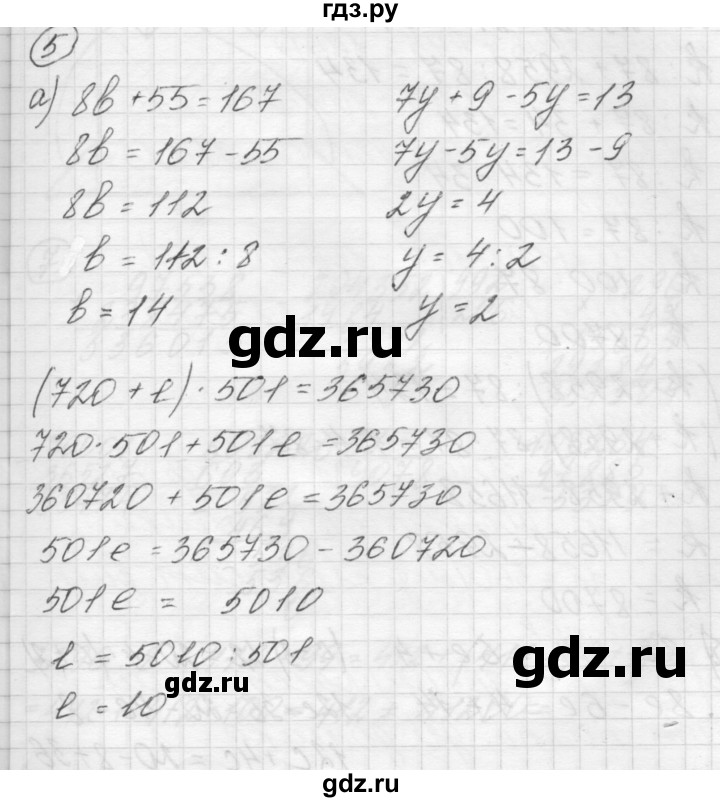 гдз.ру
5
а) 8в + 55 = 167
8в = 167 - 55
8в = 112
в = 112 : 8
в = 14
7у + 9 - 5у = 13
7у - 5у = 13 - 9
2у = 4
у = 4 : 2
у = 2
gdz.ru
(720 + е) · 501 = 365730
720 · 501 + 501е = 365730
360720 + 501е = 365730
501е = 365730 - 360720
501е = 5010
е = 5010 : 501
е = 10
gdz.ru
gdz.ru
gdz.ru